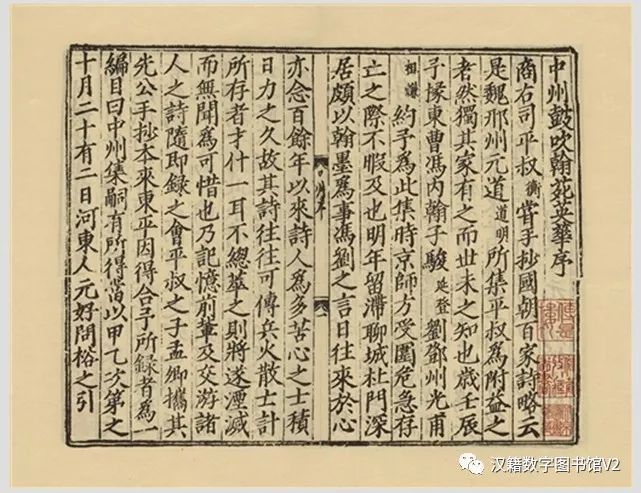 中州鼓吹翰苑英華序
商右司平叔衡甞手抄國朝百家詩略云
是魏邢州元道道明所集平叔爲附益之
者然獨其家有之而世未之知也歲壬辰
予掾東曹馮內翰子駿延登劉鄧州光甫
祖謙約予爲此集時京師方受圍危急存
亡之際不暇及也明年留滯聊城杜門深
居頗以翰墨爲事馮劉之言日往來於心
亦念百餘年以來詩人爲多苦心之士積
日力之久故其詩往往可傳兵火散亡計
所存者才什一耳不總萃之則將遂湮滅
而無聞爲可惜也乃記憶前輩及交游諸
人之詩隨即録之會平叔之子孟卿攜其
先公手抄本來東平因得合予所録者爲一
編目曰中州集嗣有所得當以甲乙次第之
十月二十有二日河東人元好問裕之引
汉籍数字图书馆V2